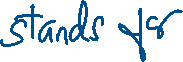 stands for